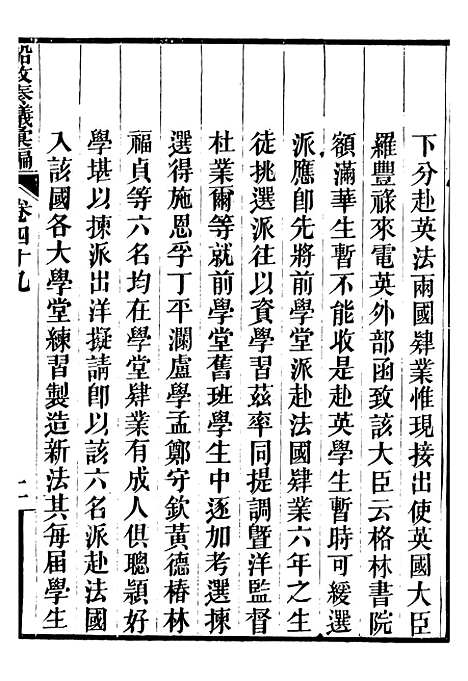 下分赴英法兩國肄業惟現接出使英國大臣
羅豐祿來電英外部函致該大臣云格林書院
額滿華生暫不能收是赴英學生暫時可緩選
派應卽先將前學堂派赴法國肄業六年之生
徒挑選派往以資學習茲率同提調曁洋監督
杜業爾等就前學堂舊班學生中逐加考選揀
選得施恩孚丁平瀾盧學孟鄭守欽黃德椿林
福貞等六名均在學堂肄業有成人俱聰穎好
學堪以揀派出洋擬請卽以該六名派赴法國
入該國各大學堂練習製造新法其每屆學生
船政奏議彙編 卷四十九